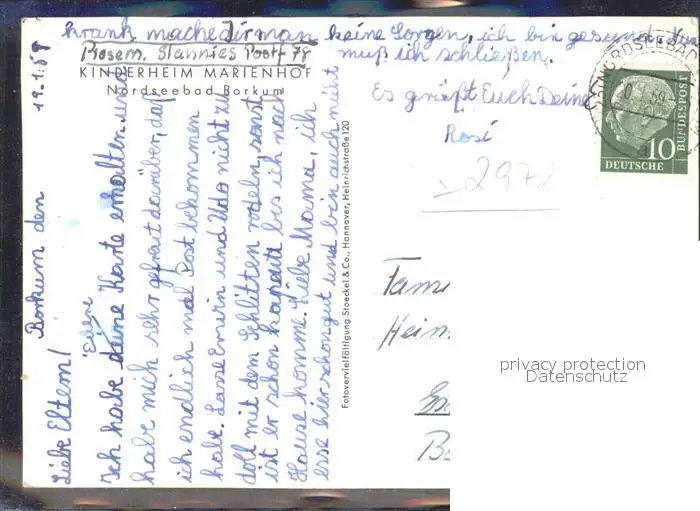 Borkum den 19.1.59
Liebe Eltern!
Eure
Ich habe deine Karte erhalten und
habe mich sehr gefreut darüber, daß
ich endlich mal Post bekommen
habe. Lasse Erwin und Udo nicht zu
doll mit dem Schlitten rodeln, sonst
ist er schon kaputt bis ich nach
Hause komme. Liebe Mama, ich
esse hier schon gut und bin auch nicht
krank mache dir man keine Sorgen, ich bin gesund. Nun
muß ich schließen.
Es grüßt Euch Deine
Rosi
Rosem. Stannies Postf 78
KINDERHEIM MARIENHOF
Nordseebad Borkum
Fotovervielfältigung Stoeckel & Co., Hannover, Heinrichstraße 120
NORDSEEBAD
59
10
DEUTSCHE
BUNDESPOST
297
Fam
Hein
privacy protection
Datenschutz